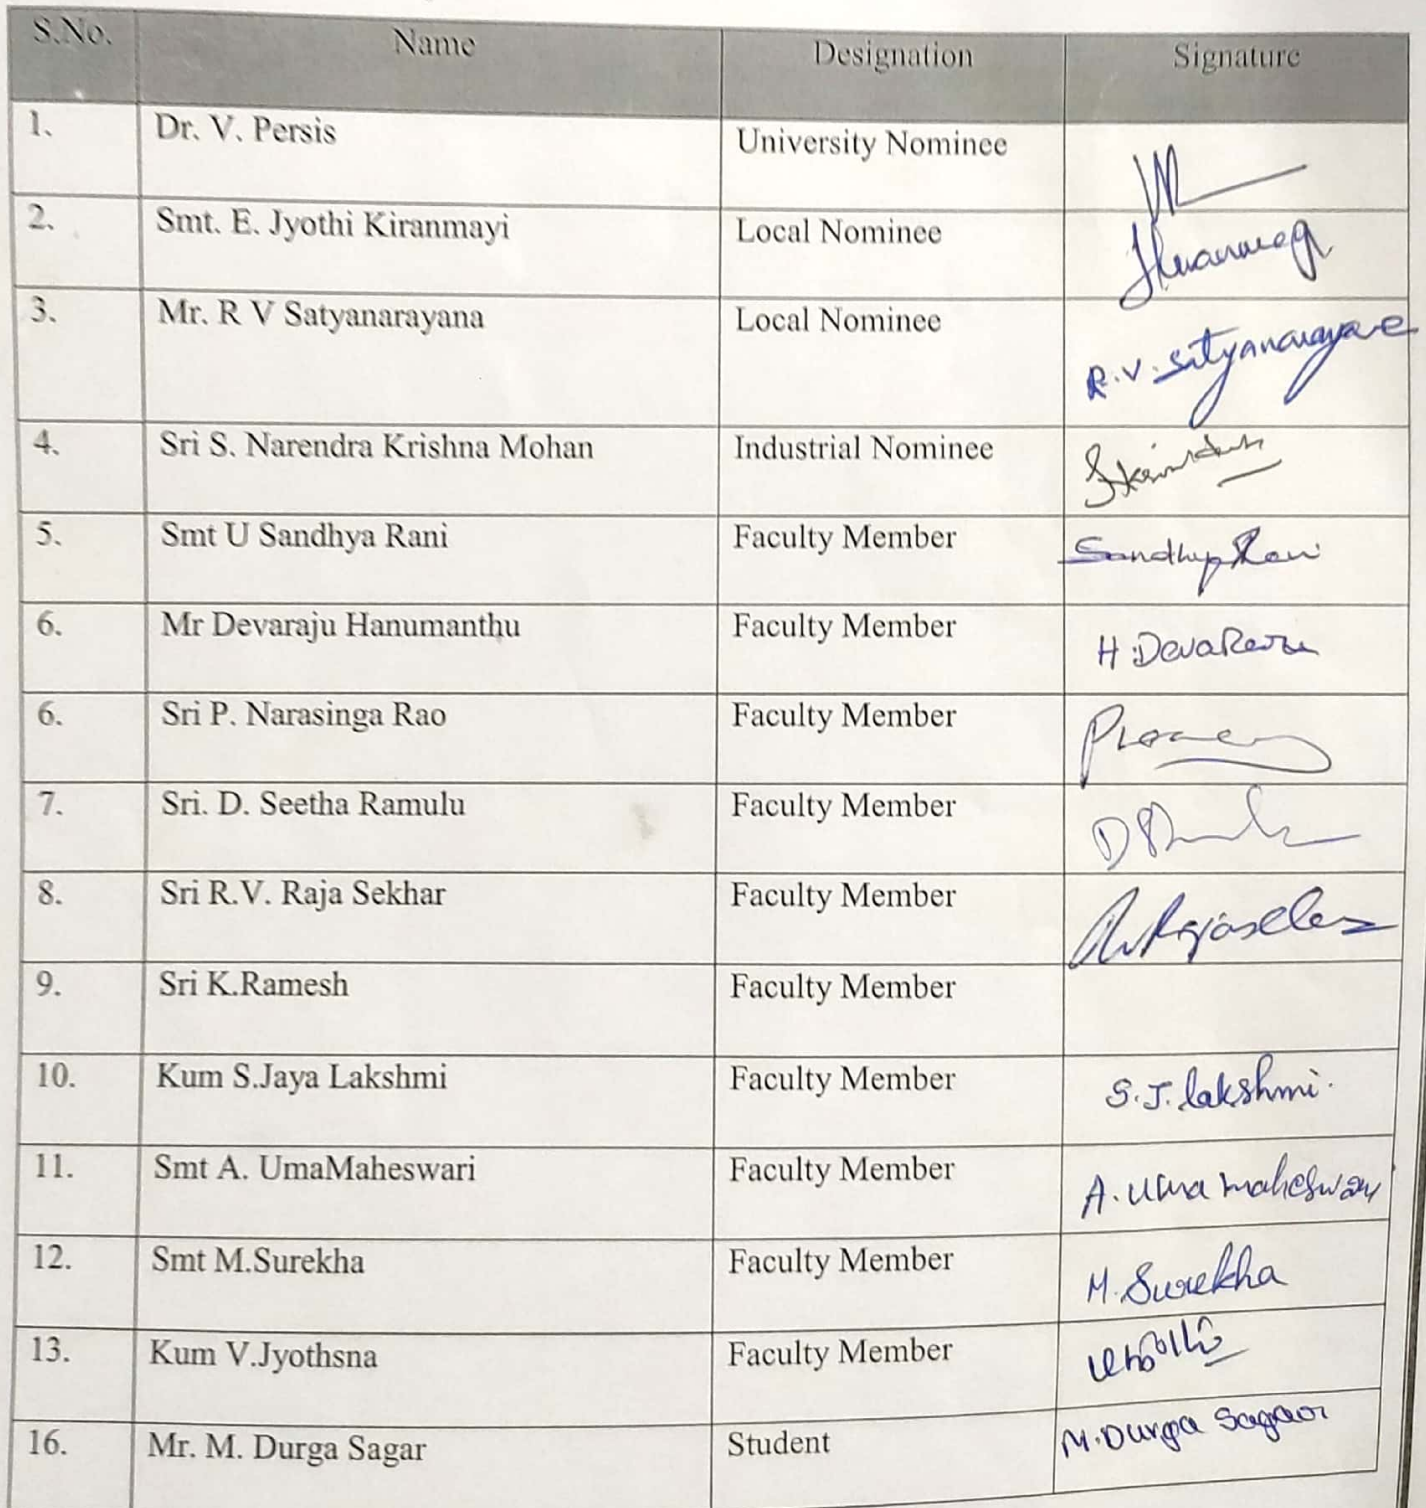 S.No. Name Designation Signature
1. Dr. V. Persis University Nominee
2. Smt. E. Jyothi Kiranmayi Local Nominee
3. Mr. R V Satyanarayana Local Nominee R.V. Satyanarayana
4. Sri S. Narendra Krishna Mohan Industrial Nominee
5. Smt U Sandhya Rani Faculty Member Sandhya Rani
6. Mr Devaraju Hanumanthu Faculty Member H.DevaRaju
6. Sri P. Narasinga Rao Faculty Member
7. Sri. D. Seetha Ramulu Faculty Member
8. Sri R.V. Raja Sekhar Faculty Member
9. Sri K.Ramesh Faculty Member
10. Kum S.Jaya Lakshmi Faculty Member S.J. lakshmi.
11. Smt A. UmaMaheswari Faculty Member A. Uma maheswari
12. Smt M.Surekha Faculty Member M. Surekha
13. Kum V.Jyothsna Faculty Member
16. Mr. M. Durga Sagar Student M.Durga Sagar